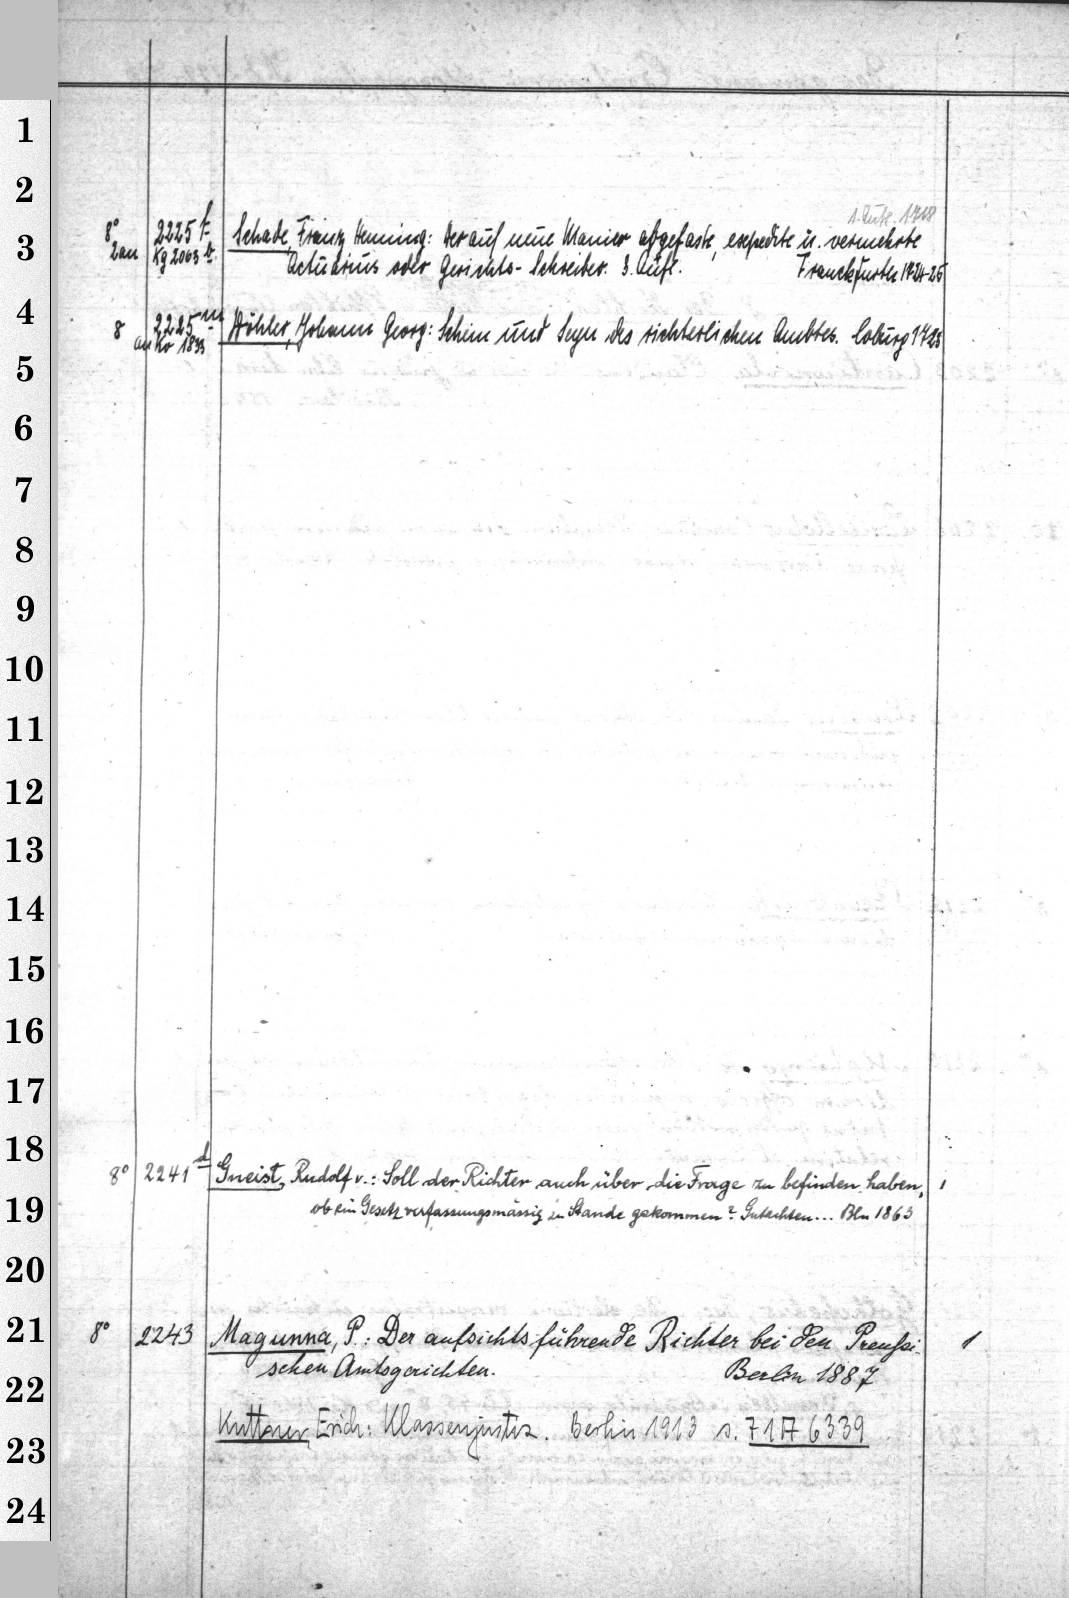 1
2
1. Aufl. 1718
8° 2225 l Schade, Franz Henning: Der auf neue Manier abgefaste, expedite u. vermehrte
3
2 an Kg 2063 Actuarius oder Gerichts-Schreiber. 3. Aufl. Franckfurth 1724-25
4
8 2225 m Wöhler, Johann Georg: Schein und Seyn des richterlichen Ambtes. Coburg 1723
an Kv 1833
5
6
7
8
9
10
11
12
13
14
15
16
17
18
8° 2241 d Gneist, Rudolf v.: Soll der Richter auch über die Frage zu befinden haben, 1
19
ob ein Gesetz verfassungsmässig zu Stande gekommen? Gutachten... Bln 1863
20
21
8° 2243 Magunna, P.: Der aufsichtsführende Richter bei den Preußi- 1
schen Amtsgerichten. Berlin 1887
22
Kuttner, Erich: Klassenjustiz. Berlin 1913 s. 71 A 6339
23
24